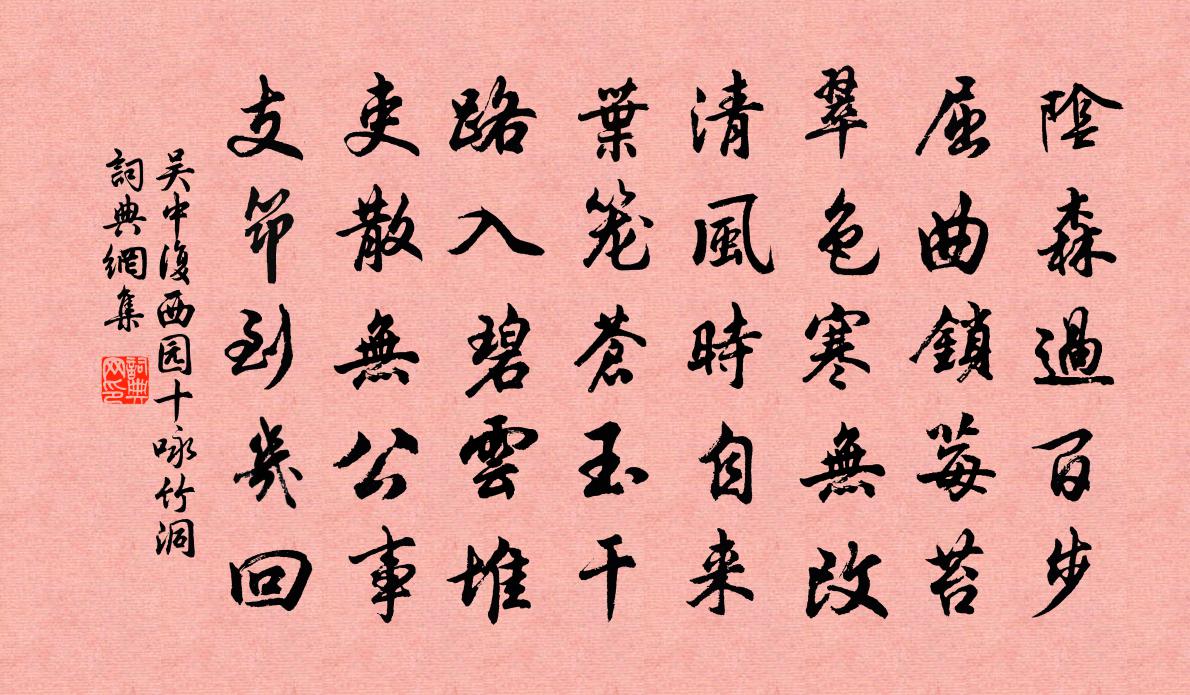 陰森過百步
屈曲鎖莓苔
翠色寒無改
清風時自来
葉笼蒼玉干
路入碧雲堆
吏散無公事
支笻到幾回
吴中復西园十咏竹洞
詞典網集
詞典网印